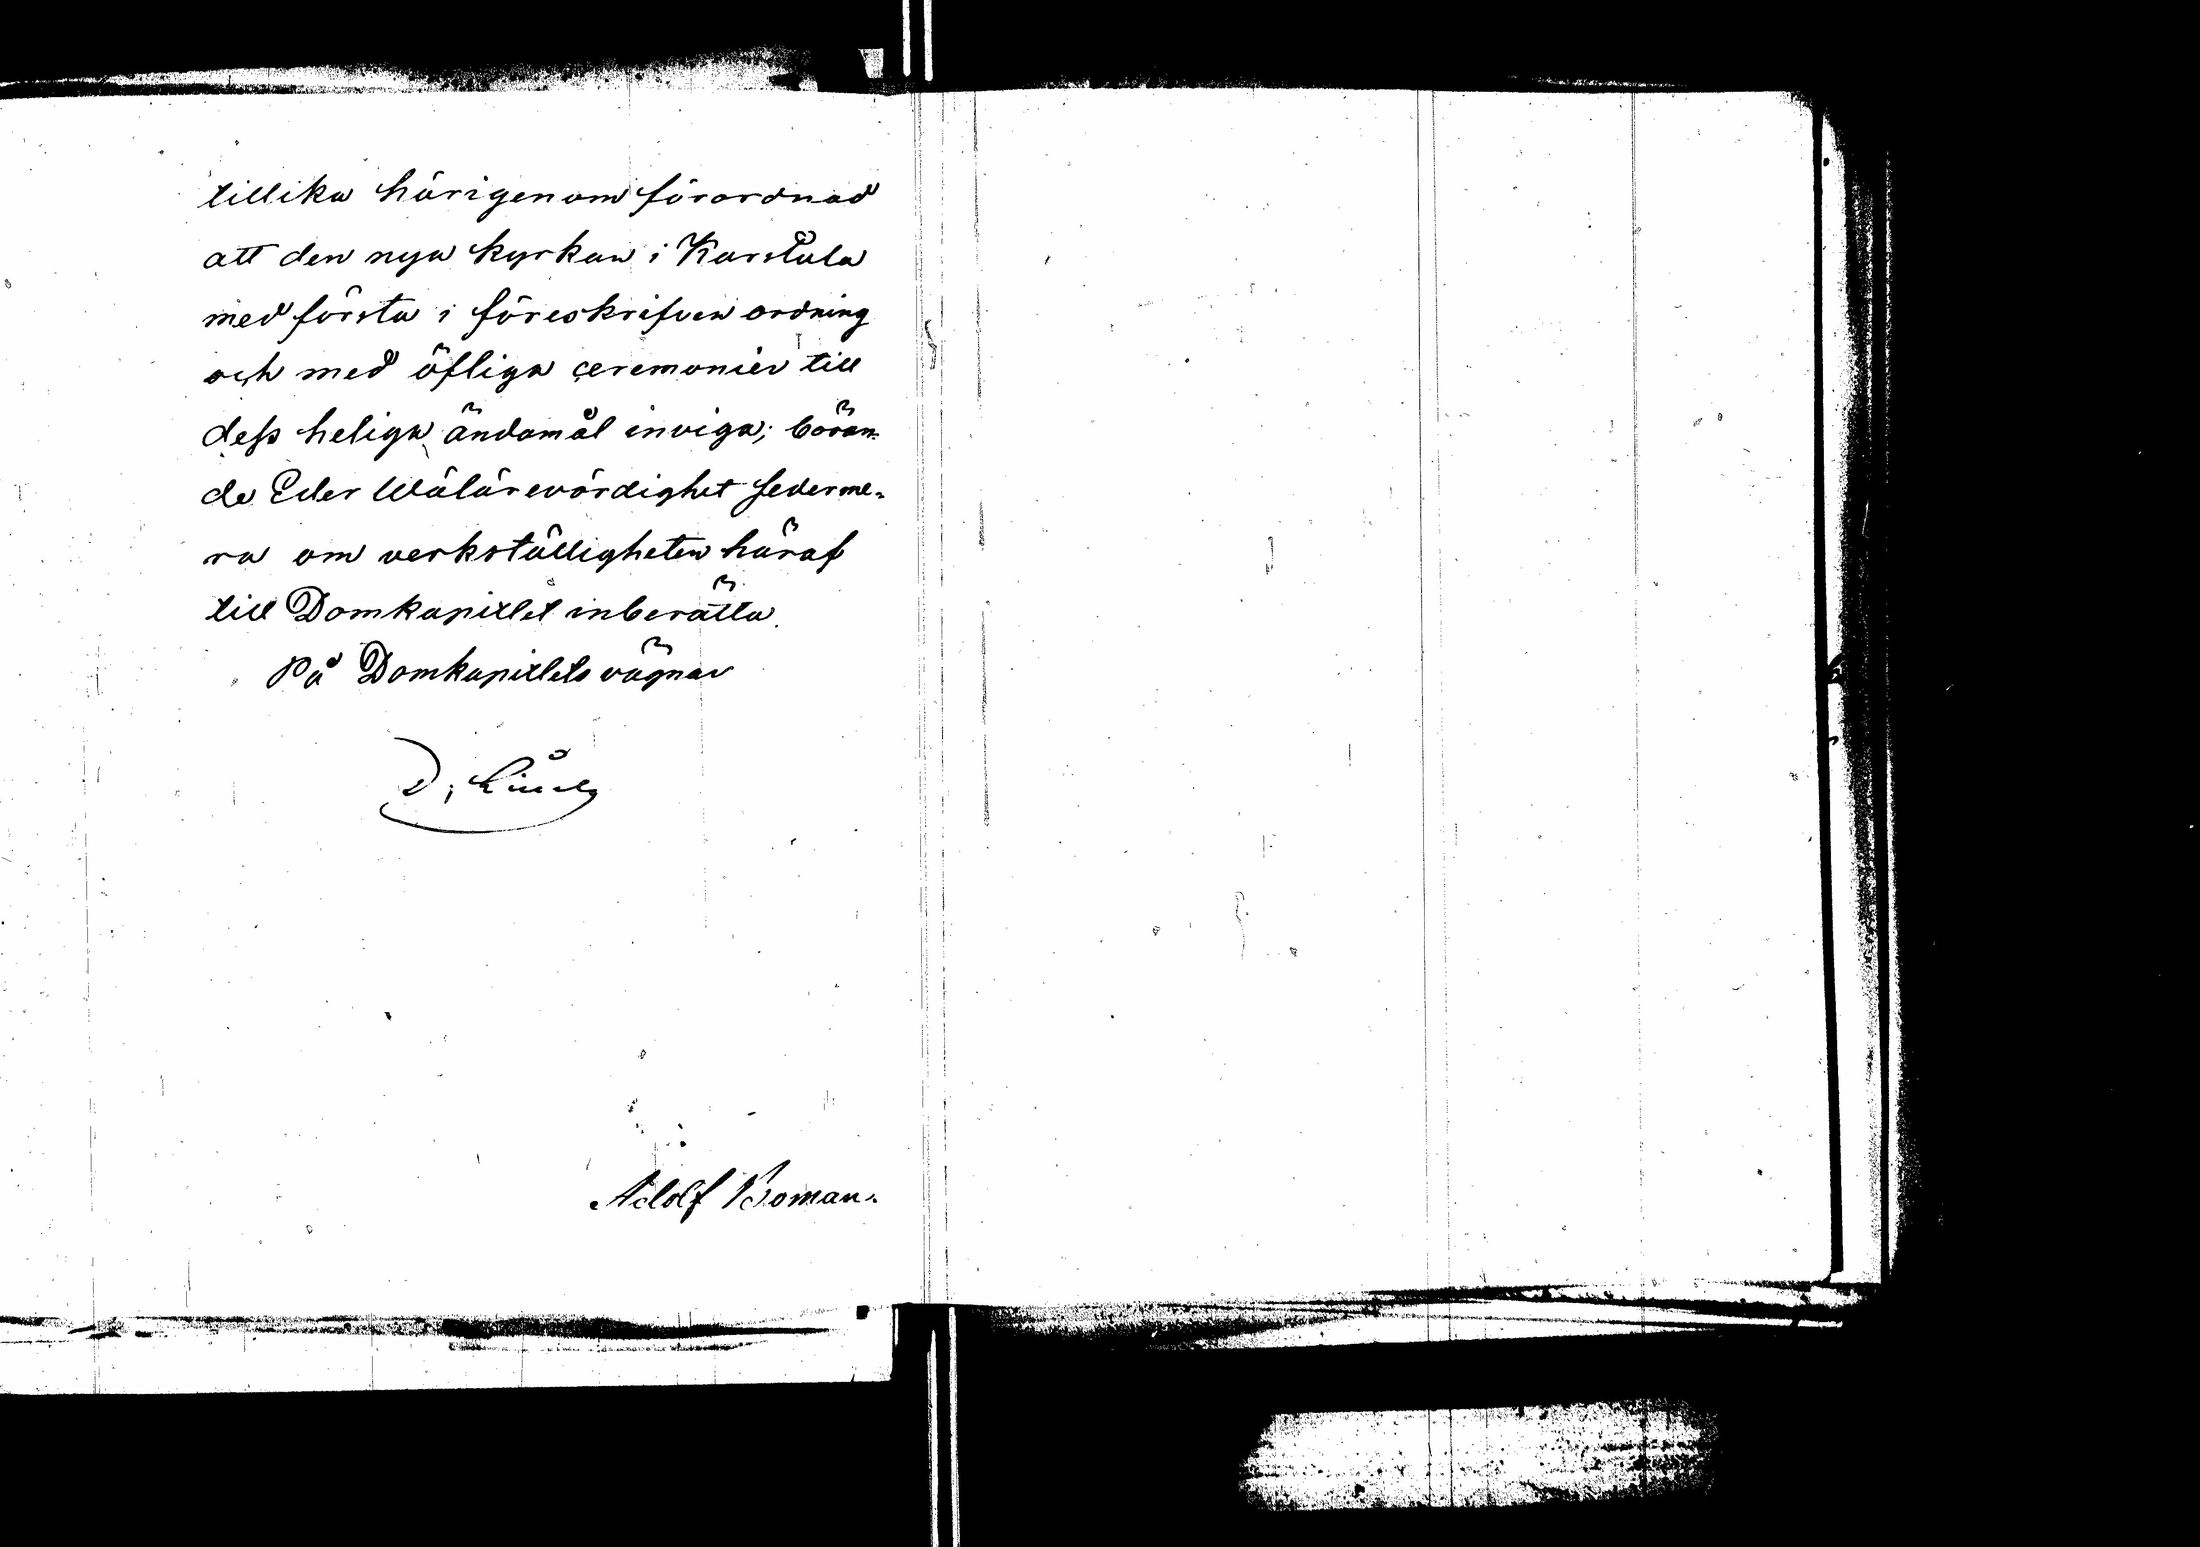 tillika härigenom förordnad
att den nya kyrkan i Karstula
med första i föreskrifven ordning
och med öfliga ceremonier till
dess heliga ändamål inviga; böran-
de Eder Wälärevördighet sederme-
ra om verkställigheten häraf
till Domkapitlet inberätta.
På Domkapitlets vägnar
D.
Adolf Boman.